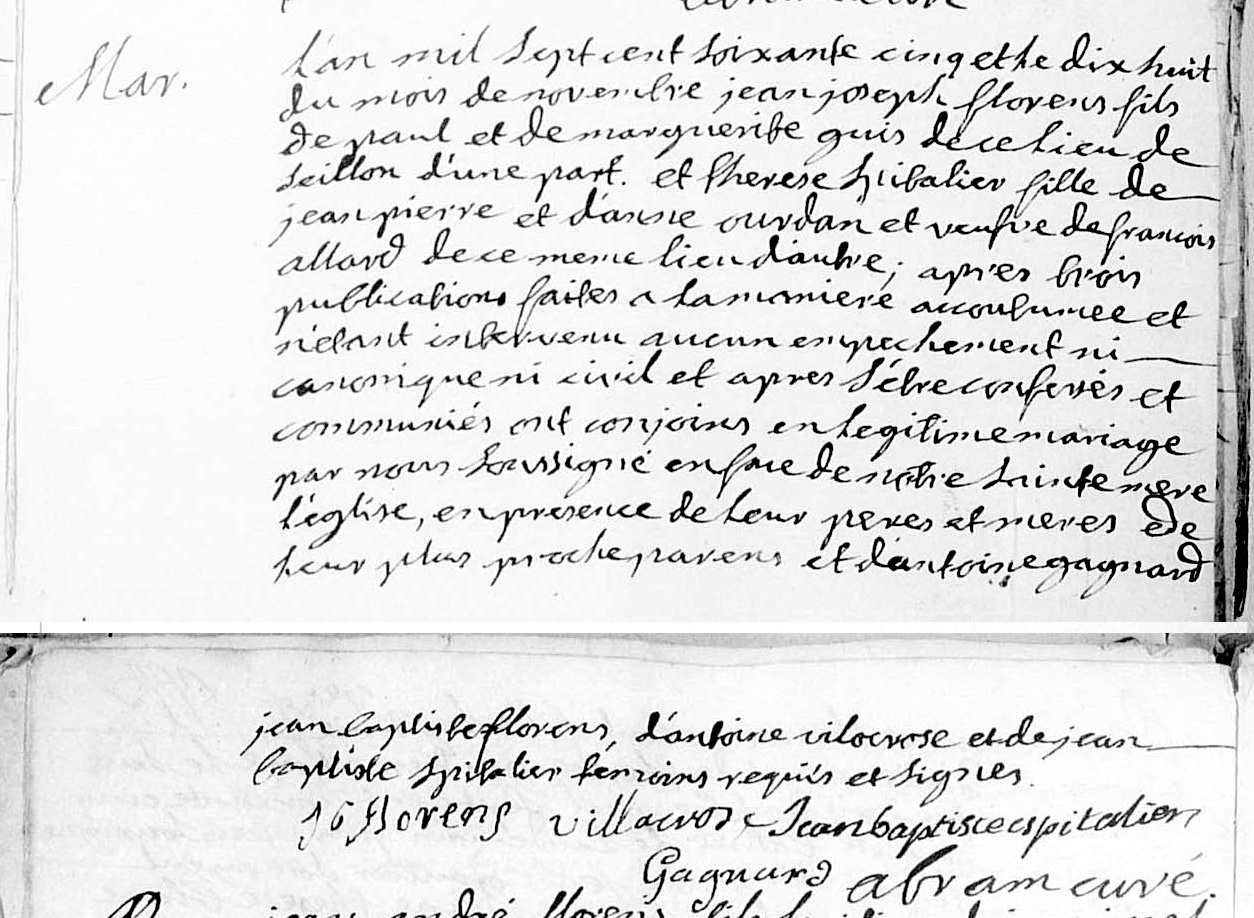 Mar.
L'an mil sept cent soixante cinq et le dix huit
du mois de novembre jean joseph florens fils
de paul et de marguerite guis de ce lieu de
seillon d'une part. et therese spitalier fille de
jean pierre et d'anne ourdan et veufve de francois
allard de ce meme lieu d'autre; apres trois
publications faites a la maniere accoutumee et
n'etant intervenu aucun empechement ni
canonique ni civil et apres s'etre confessés et
communiés ont conjoins en legitime mariage
par nous soussigné en face de notre sainte mere
l'église, en presence de leur peres et meres ede
leur plus proche parens et d'antoine gagnard
jean baptiste florens, d'antoine vilacrose et de jean
baptiste spitalier temoins requis et signés.
J b florens villacrose Jean baptiste espitalier
Gagnard abram curé.
jean andré florens fils